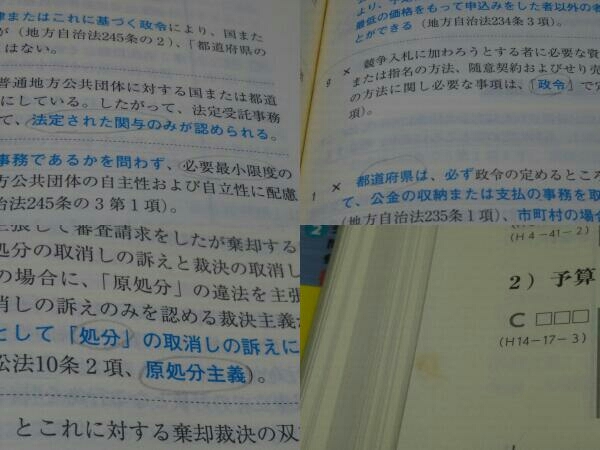 またはこれに基づく政令により、国また
が（地方自治法245条の2）、「都道府県の
はない。
普通地方公共団体に対する国または都道
にしている。したがって、法定受託事務
て、法定された関与のみが認められる。
事務であるかを問わず、必要最小限度の
方公共団体の自主性および自立性に配慮
治法245条の3第1項）。
最低の価格をもって申込みをした者以外の者
とができる（地方自治法234条3項）。
9 × 競争入札に加わろうとする者に必要な資
または指名の方法、随意契約およびせり売
の方法に関し必要な事項は、「政令」で定
項）。
1 × 都道府県は、必ず政令の定めるところ
て、公金の収納または支払の事務を取
（地方自治法235条1項）、市町村の場合
張して審査請求をしたが棄却する
処分の取消しの訴えと裁決の取消し
の場合に、「原処分」の違法を主張
消しの訴えのみを認める裁決主義
として「処分」の取消しの訴えに
公法10条2項、原処分主義）。
とこれに対する棄却裁決の双
2
(H4-41-2)
2）予算
C □□□
(H14-17-3)